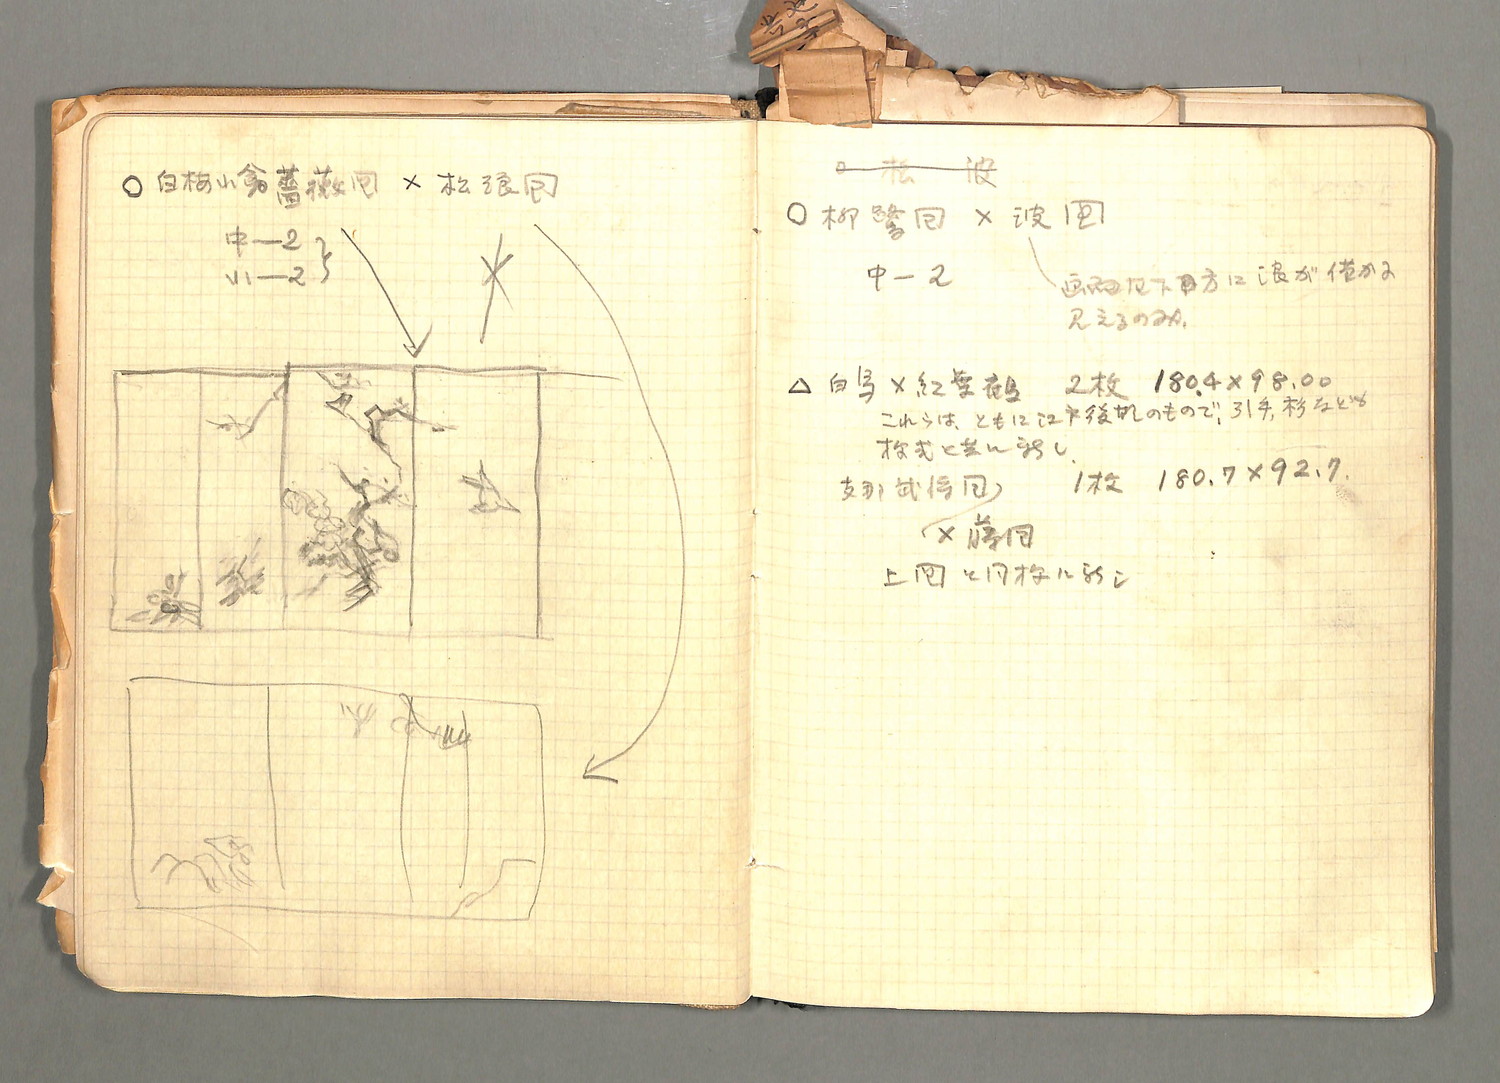 ○ 白梅小禽薔薇図 × 松浪図
中—2
小—2
松 波
○ 柳鷺図 × 波図
中—2
画面左下方に浪が僅かに
見えるのみ。
△ 白鳥×紅葉 2枚 180.4×98.00
これらは、ともに江戸後期のもので、引手、杉なども
様式と共に新し
支那武信図 1枚 180.7×92.7.
× 藤図
上図と同様に新し